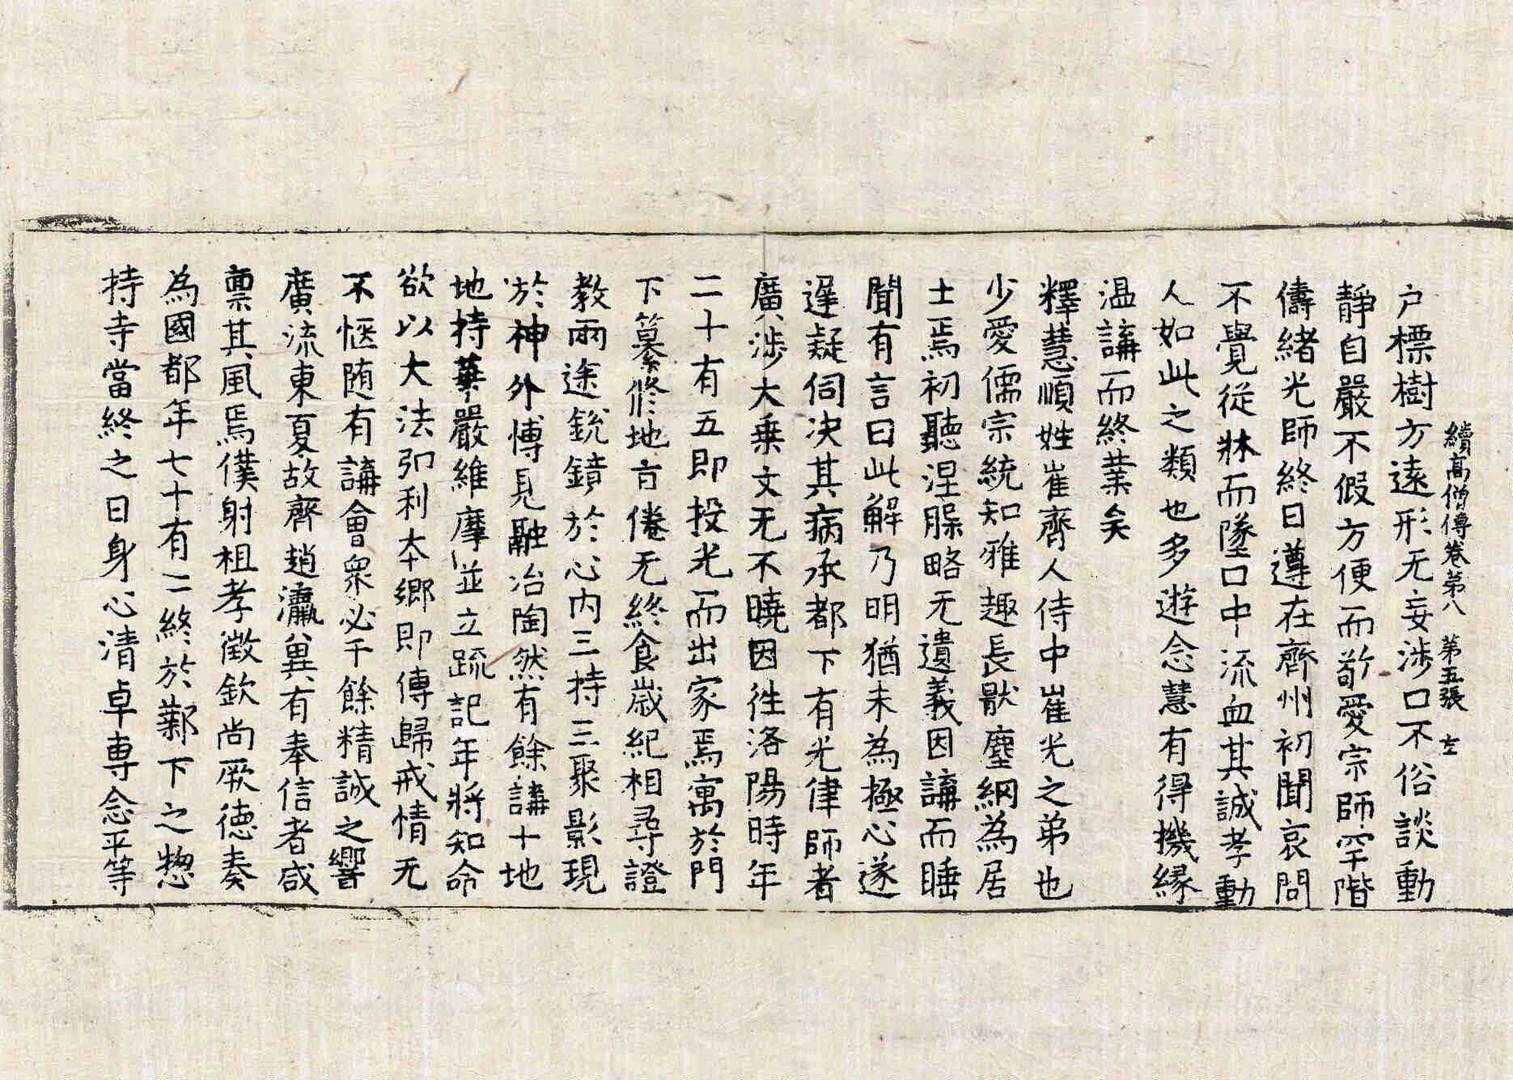 續高僧傳卷第八 第五張 左
户標樹方遠形无妄涉口不俗談動
靜自嚴不假方便而敬愛宗師罕階
儔緒光師終日遵在齊州初聞哀問
不覺從牀而墜口中流血其誠孝動
人如此之類也多遊念慧有得機緣
温講而終業矣
釋慧順姓崔齊人侍中崔光之弟也
少愛儒宗統知雅趣長猒塵網為居
士焉初聽涅槃略无遺義因講而睡
聞有言曰此解乃明猶未為極心遂
遲疑伺决其病承都下有光律師者
廣涉大乗文无不曉因徃洛陽時年
二十有五即投光而出家焉寓於門
下纂修地旨倦无終食歲紀相尋證
教兩途銳鏡於心內三持三聚影現
於神外愽見融冶陶然有餘講十地
地持華嚴維摩並立䟽記年將知命
欲以大法弘利本鄉即傳歸戒情无
不愜随有講會衆必千餘精誠之響
廣流東夏故齊趙瀛兾有奉信者咸
稟其風焉僕射祖孝徵欽尚厥德奏
為國都年七十有二終於鄴下之惣
持寺當終之日身心清卓専念平等